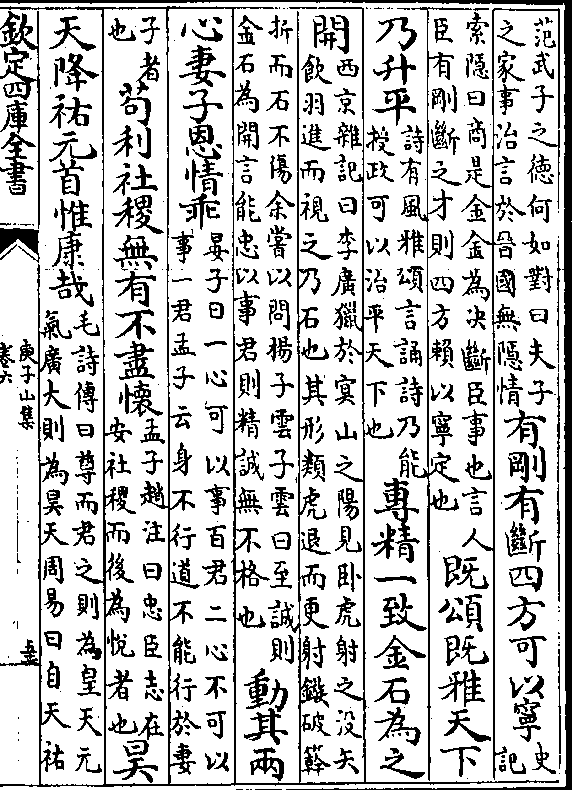 范武子之德何如對曰夫子
之家事治言於晉國無隱情
有剛有斷四方可以寧
史
記
索隱曰商是金金為決斷臣事也言人
臣有剛斷之才則四方賴以寧定也
既頌既雅天下
乃升平
詩有風雅頌言誦詩乃能
授政可以治平天下也
專精一致金石為之
開
西京雜記曰李廣獵於㝠山之陽見卧虎射之没矢
飲羽進而視之乃石也其形類虎退而更射鏃破簳
折而石不傷余嘗以問揚子雲子雲曰至誠則
金石為開言能忠以事君則精誠無不格也
動其兩
心妻子恩情乖
晏子曰一心可以事百君二心不可以
事一君孟子云身不行道不能行於妻
子者
也
茍利社稷無有不盡懷
孟子趙注曰忠臣志在
安社稷而後為悦者也
昊
天降祐元首惟康哉
毛詩傳曰尊而君之則為皇天元
氣廣大則為昊天周易曰自天祐
欽定四庫全書
庾子山集
卷六